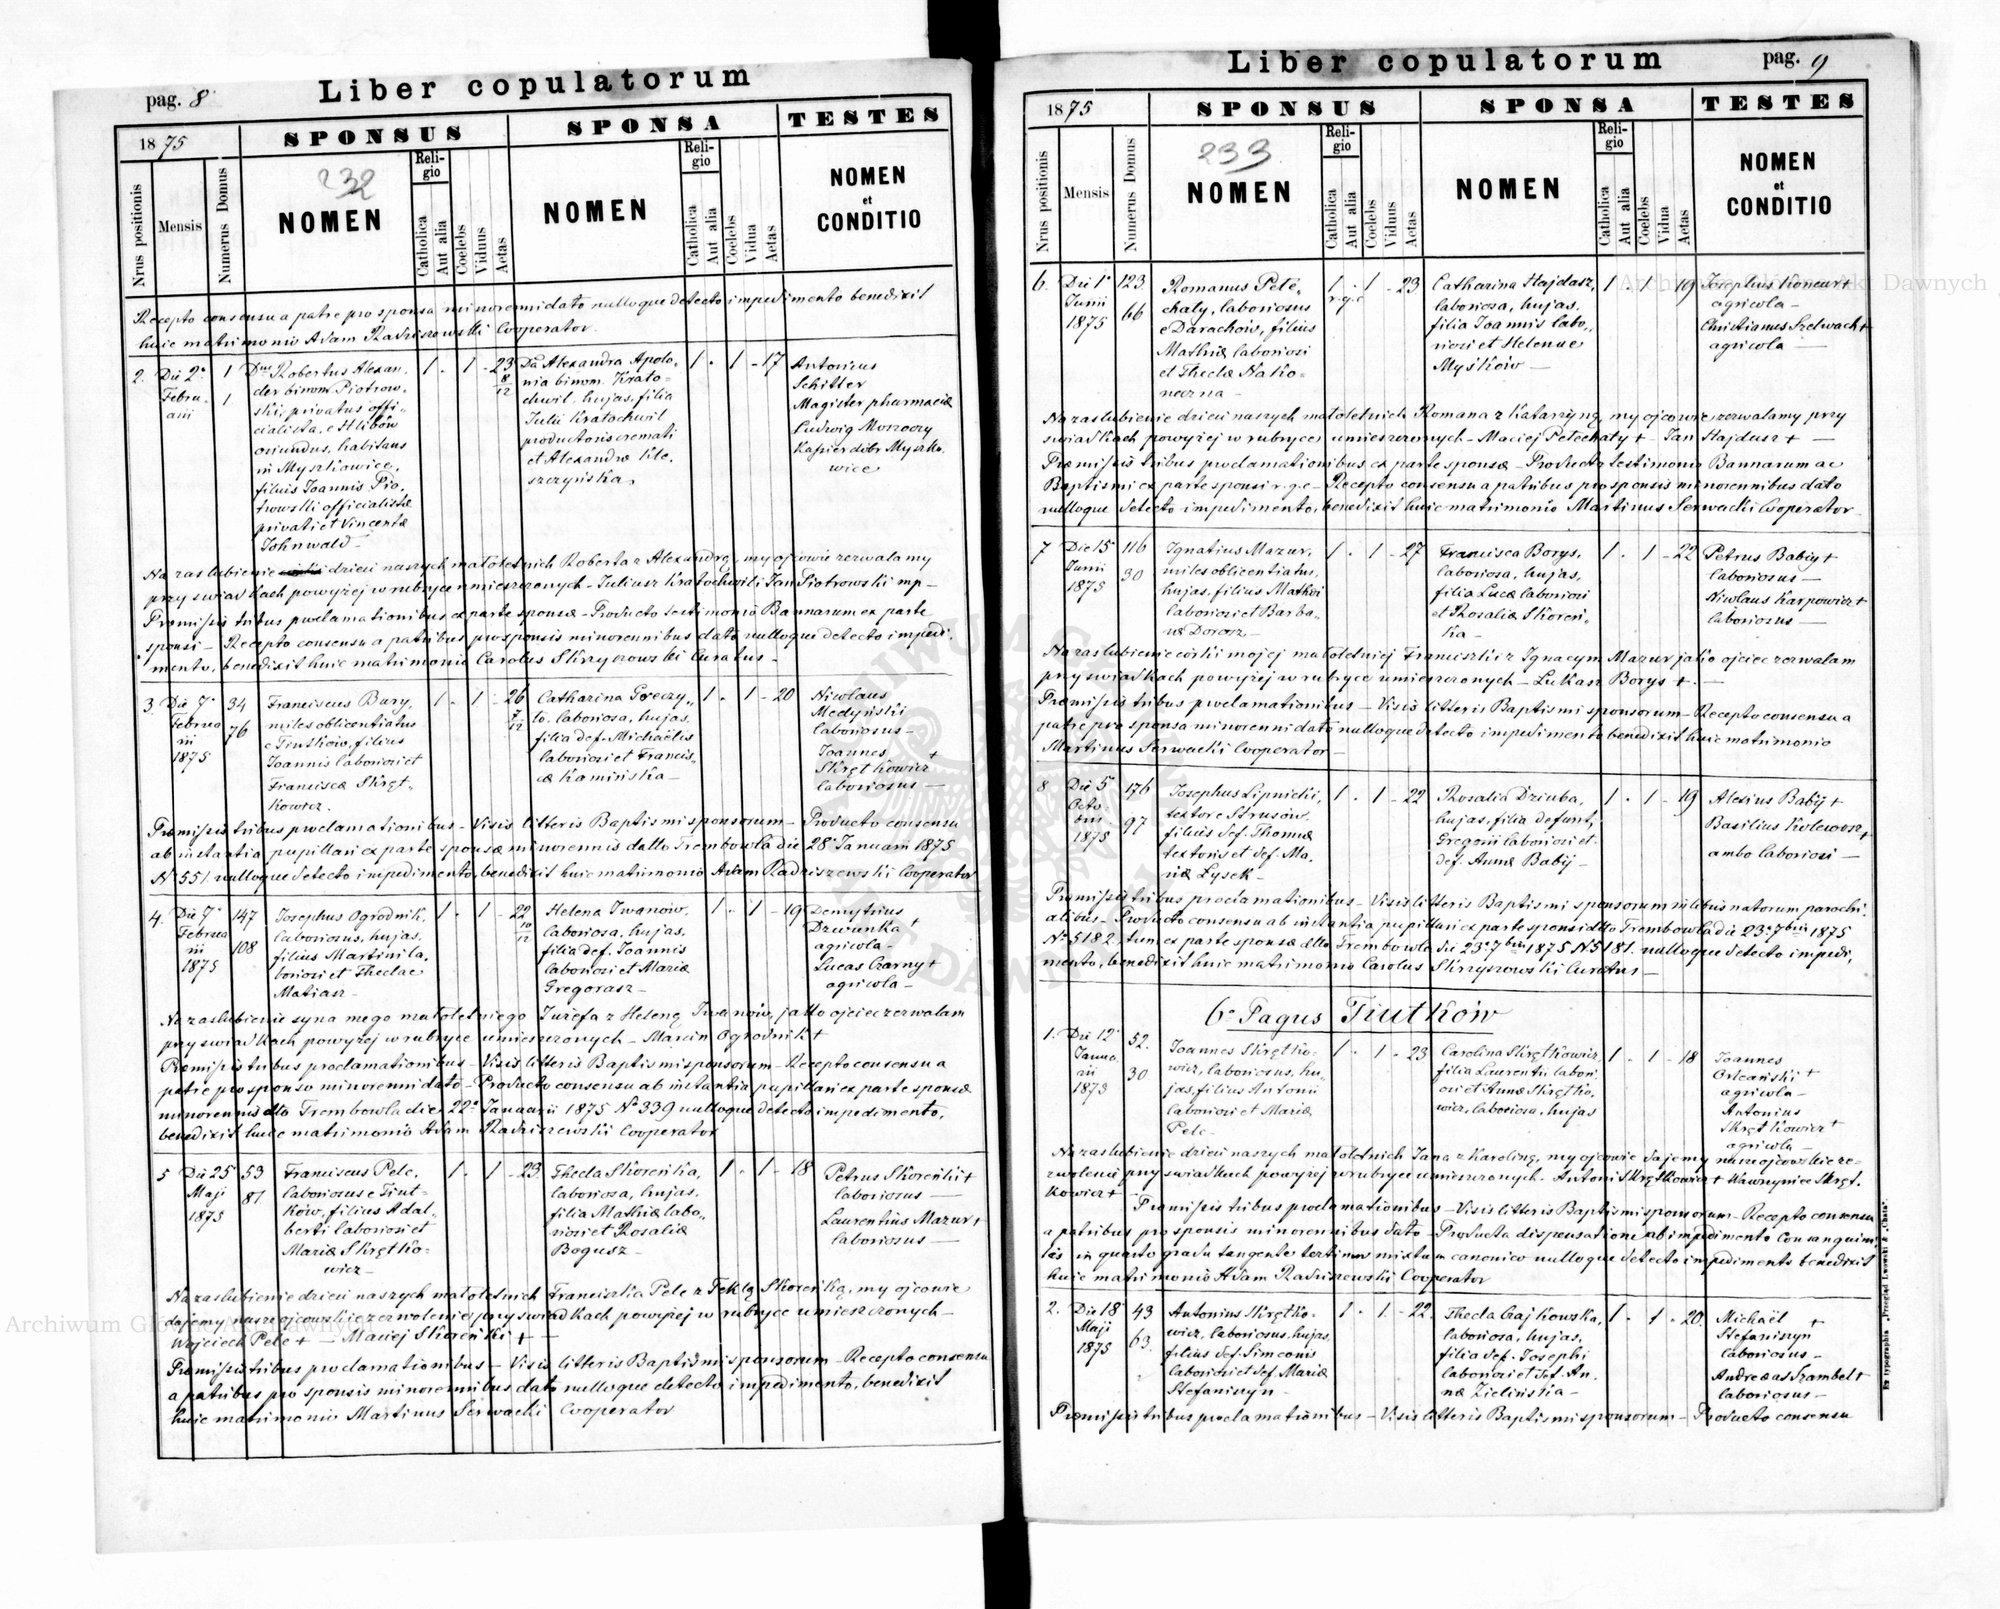 pag. 8
Liber copulatorum
1875
SPONSUS
SPONSA
TESTES
Nrus positionis
Mensis
Numerus Domus
232
NOMEN
Religio
Catholica
Aut alia
Coelebs
Viduus
Aetas
NOMEN
Religio
Catholica
Aut alia
Coelebs
Vidua
Aetas
NOMEN
et
CONDITIO
Recepto consensu a patre pro sponsa minorenni dato nulloque detecto impedimento benedixit
huic matrimonio Adam Radziszewski Cooperator.
2. Die 2a
Februarii
1
1
Dnus Robertus Alexan-
der binom. Piotrow-
ski, privatus offi-
cialista, e Hlibów
oriundus, habitans
in Myszkowice,
filius Joannis Pio-
trowski officialistæ
privati et Vincentæ
Johnwald
1 - 1 - 23 8/12
Da Alexandra Apolo-
nia binom. Krato-
chwil, hujas, filia
Julii Kratochwil
productoris cremati
et Alexandræ Kle-
szczyńska.
1 - 1 - 17
Antonius
Schiller
Magister pharmaciæ
Ludwig Mroczy
Kasier dóbr Myszko
wice
Na zaslubienie dzieci naszych małoletnich Roberta z Alexandrą, my ojcowie zezwalamy
przy swiadkach powyżej w rubryce umieszczonych - Juliusz Kratochwil i Jan Piotrowski mp -
Præmissis tribus proclamationibus ex parte sponsæ - Producto testimonio Bannarum ex parte
sponsi - Recepto consensu a patribus pro sponsis minorennibus dato nulloque detecto impedi-
mento, benedixit huic matrimonio Carolus Skrzyszowski Curatus -
3. Die 7a
Februa
rii
1875
34
76
Franciscus Bury,
miles oblicentiatus
e Tiutków, filius
Joannis laboriosi et
Franciscæ Skręt-
kowicz.
1 - 1 - 26 7/12
Catharina Greczy-
ło, laboriosa, hujas,
filia def. Michaëlis
laboriosi et Francis-
cæ Kamińska -
1 - 1 - 20
Nicolaus
Medyński
laboriosus -
Joannes +
Skrętkowicz
laboriosus -
Præmissis tribus proclamationibus - Visis litteris Baptismi sponsorum - Producto consensu
ab instantia pupillari ex parte sponsæ minorennis ddto Trembowla die 28a Januarii 1875
No 551. nulloque detecto impedimento, benedixit huic matrimonio Adam Radziszewski Cooperator
4. Die 7a
Februa
rii
1875
147
108
Josephus Ogrodnik,
laboriosus, hujas,
filius Martini la-
boriosi et Theclae
Matiasz -
1 - 1 - 22 10/12
Helena Iwanów,
laboriosa, hujas,
filia def. Joannis
laboriosi et Mariæ
Gregorasz -
1 - 1 - 19
Demytrius
Dzwunka +
agricola -
Lucas Czarny +
agricola -
Na zaslubienie syna mego małoletniego Józefa z Heleną Iwanów, jako ojciec zezwalam
przy swiadkach powyżej w rubryce umieszczonych - Marcin Ogrodnik +
Præmissis tribus proclamationibus - Visis litteris Baptismi sponsorum - Recepto consensu a
patre pro sponso minorenni dato - Producto consensu ab instantia pupillari ex parte sponsæ
minorennis ddto Trembowla die 22a Januarii 1875 No 339 nulloque detecto impedimento,
benedixit huic matrimonio Adam Radziszewski Cooperator
5 Die 25
Maji
1875
53
87
Franciscus Pelc,
laboriosus e Tiut-
ków, filius Adal-
berti laboriosi et
Mariæ Skrętko-
wicz -
1 - 1 - 23
Thecla Skoreńka,
laboriosa, hujas,
filia Mathiæ labo-
riosi et Rosaliæ
Bogusz -
1 - 1 - 18
Petrus Skoreński +
laboriosus -
Laurentius Mazur +
laboriosus -
Na zaslubienie dzieci naszych małoletnich Franciszka Pelc z Teklą Skoreńką, my ojcowie
dajemy nasze ojcowskie zezwolenie przy swiadkach powyżej w rubryce umieszczonych -
Wojciech Pelc + - Maciej Skoreński + -
Præmissis tribus proclamationibus - Visis litteris Baptismi sponsorum - Recepto consensu
a patribus pro sponsis minorennibus dato nulloque detecto impedimento, benedixit
huic matrimonio Martinus Serwacki Cooperator
Liber copulatorum
pag. 9
1875
SPONSUS
SPONSA
TESTES
Nrus positionis
Mensis
Numerus Domus
233
NOMEN
Religio
Catholica
Aut alia
Coelebs
Viduus
Aetas
NOMEN
Religio
Catholica
Aut alia
Coelebs
Vidua
Aetas
NOMEN
et
CONDITIO
6. Die 1a
Junii
1875
123
66
Romanus Pete-
chaty, laboriosus
e Darachów, filius
Mathiæ laboriosi
et Theclæ Nako-
neczna -
1 - 1 - 23
r.g.c
Catharina Hajdasz,
laboriosa, hujas,
filia Joannis labo-
riosi et Helenae
Myśków -
1 - 1 - 19
Josephus Koncur +
agricola -
Christianus Szelwach +
agricola -
Na zaslubienie dzieci naszych małoletnich Romana z Katarzyną, my ojcowie zezwalamy przy
swiadkach powyżej w rubryce umieszczonych - Maciej Petechaty + Jan Hajdasz + -
Præmissis tribus proclamationibus ex parte sponsæ - Producto testimonio Bannarum ac
Baptismi ex parte sponsi r.g.c - Recepto consensu a patribus pro sponsis minorennibus dato
nulloque detecto impedimento, benedixit huic matrimonio Martinus Serwacki Cooperator
7 Die 15
Junii
1875
116
30
Ignatius Mazur,
miles oblicentiatus,
hujas, filius Mathæi
laboriosi et Barba-
ræ Dorosz -
1 - 1 - 27
Francisca Borys,
laboriosa, hujas,
filia Lucæ laboriosi
et Rosaliæ Skoreń-
ka -
1 - 1 - 22
Petrus Babiy +
laboriosus -
Nicolaus Karpowicz +
laboriosus -
Na zaslubienie córki mojej małoletniej Franciszki z Ignacym Mazur jako ojciec zezwalam
przy swiadkach powyżej w rubryce umieszczonych - Lukasz Borys + -
Præmissis tribus proclamationibus - Visis litteris Baptismi sponsorum - Recepto consensu a
patre pro sponsa minorenni dato nulloque detecto impedimento benedixit huic matrimonio
Martinus Serwacki Cooperator -
8 Die 5
Octo-
bris
1875
176
97
Josephus Lipnicki,
textor e Strusów,
filius def. Thomæ
textoris et def. Ma-
riæ Łysek -
1 - 1 - 22
Rosalia Dziuba,
hujas, filia defunt,
Gregorii laboriosi et
def. Annæ Babij -
1 - 1 - 19
Alexius Babij +
Basilius Kolewosz +
ambo laboriosi -
Præmissis tribus proclamationibus - Visis litteris Baptismi sponsorum in libris natorum parochi-
alibus - Producto consensu ab instantia pupillari ex parte sponsi ddto Trembowla die 23a 7bris 1875
No 5182. tum ex parte sponsæ ddto Trembowla die 23a 7bris 1875 No 5181. nulloque detecto impedi-
mento, benedixit huic matrimonio Carolus Skrzyszowski Curatus -
6o Pagus Tiutków
1. Die 12a
Janua
rii
1875
52.
30
Joannes Skrętko-
wicz, laboriosus, hu-
jas, filius Antonii
laboriosi et Mariæ
Pelc -
1 - 1 - 23
Carolina Skrętkowicz,
filia Laurentii labori-
osi et Annæ Skrętko-
wicz, laboriosa, hujas
1 - 1 - 18
Joannes
Orleański +
agricola -
Antonius
Skrętkowicz +
agricola -
Na zaslubienie dzieci naszych małoletnich Jana z Karoliną, my ojcowie dajemy nasze ojcowskie ze-
zwolenie przy swiadkach powyżej w rubryce umieszczonych - Antoni Skrętkowicz + Wawrzyniec Skręt-
kowicz +
Præmissis tribus proclamationibus - Visis litteris Baptismi sponsorum - Recepto consensu
a patribus pro sponsis minorennibus dato - Producta dispensatione ab impedimento consanguini-
tatis in quarto gradu tangente tertium mixtum canonico nulloque detecto impedimento benedixit
huic matrimonio Adam Radziszewski Cooperator
2. Die 18
Maji
1875
43
63.
Antonius Skrętko-
wicz, laboriosus, hujas,
filius def. Simeonis
laboriosi et def. Mariæ
Stefaniszyn -
1 - 1 - 22
Thecla Czajkowska,
laboriosa, hujas,
filia def. Josephi
laboriosi et def. An-
næ Zielińska -
1 - 1 - 20
Michaël +
Stefaniszyn
laboriosus -
Andreas Szambel +
laboriosus -
Præmissis tribus proclamationibus - Visis litteris Baptismi sponsorum - Producto consensu
Ex typographia „Przegląd Lwowski & „Chata".
Archiwum Główne Akt Dawnych
Archiwum Główne Akt Dawnych